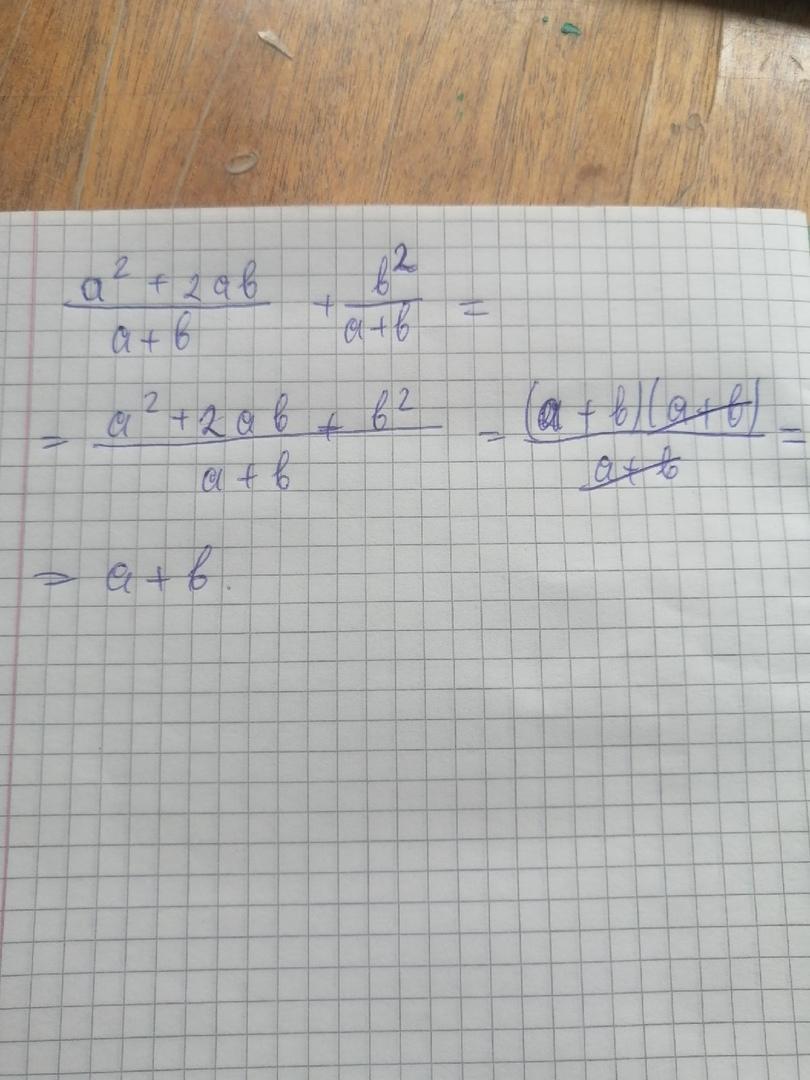 (a² + 2ab)/(a+b) + b²/(a+b) =
= (a² + 2ab + b²)/(a+b) = (a+b)(a+b)/(a+b) =
= a+b.